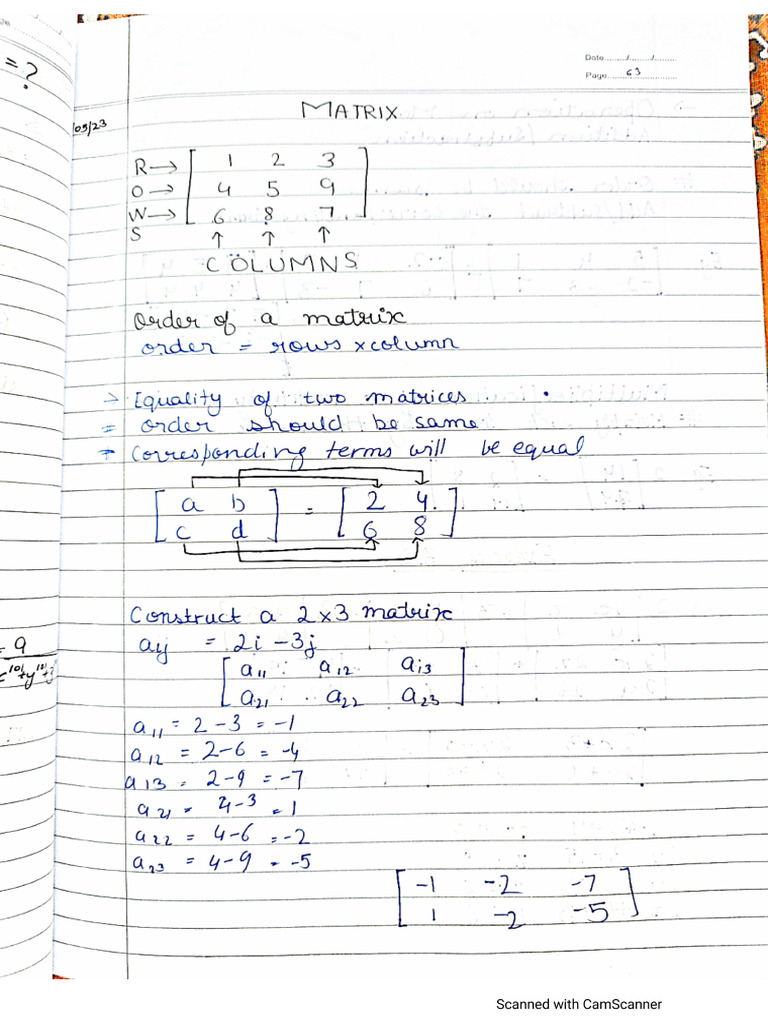 = ?
Date ....../....../......
Page 63
MATRIX
05/23
R→ [ 1 2 3 ]
O→ [ 4 5 9 ]
W→ [ 6 8 7 ]
S ↑ ↑ ↑
COLUMNS
Order of a matrix
order = rows x column
> Equality of two matrices
= order should be same
= Corresponding terms will be equal
[ a b ] = [ 2 4 ]
[ c d ] [ 6 8 ]
Construct a 2x3 matrix
aij = 2i - 3j
[ a11 a12 a13 ]
[ a21 a22 a23 ]
= 9
a11 = 2 - 3 = -1
a12 = 2-6 = -4
a13 = 2-9 = -7
a21 = 4-3 = 1
a22 = 4-6 = -2
a23 = 4-9 = -5
[ -1 -2 -7 ]
[ 1 -2 -5 ]
Scanned with CamScanner